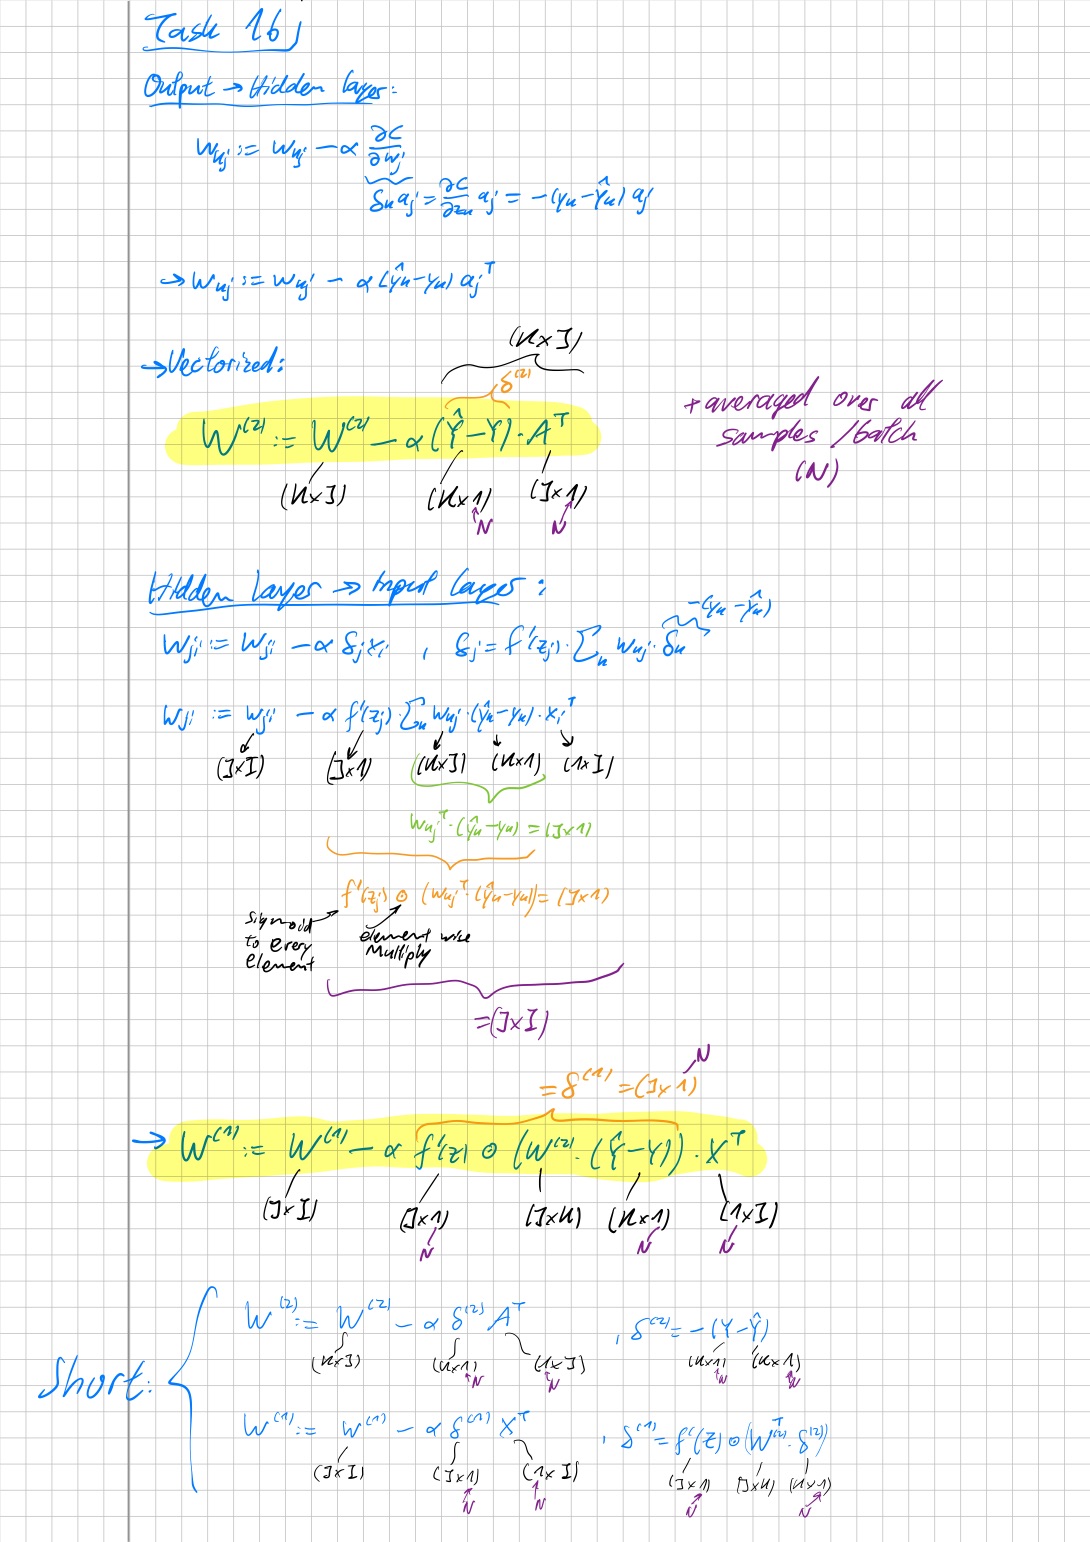 Task 1b)
Output → Hidden layer:
w_kj := w_kj − α ∂C/∂w_j
δ_k a_j = ∂C/∂z_k a_j = −(y_k − ŷ_k) a_j
→ w_kj := w_kj − α (ŷ_k − y_k) a_j^T
(K×J)
→ Vectorized:
δ^(2)
W^(2) := W^(2) − α (Ŷ − Y) · A^T
+ averaged over all
samples / batch
(N)
(K×J) (K×1) (J×1)
N N
Hidden layer → Input layer:
−(y_k − ŷ_k)
w_ji := w_ji − α δ_j x_i , δ_j = f'(z_j) · Σ_k w_kj · δ_k
w_ji := w_ji − α f'(z_j) · Σ_k w_kj · (ŷ_k − y_k) · x_i^T
(J×I) (J×1) (K×J) (K×1) (1×I)
w_kj^T · (ŷ_k − y_k) = (J×1)
f'(z_j) ⊙ (w_kj^T · (ŷ_k − y_k)) = (J×1)
sigmoid
to every
element
element wise
multiply
= (J×I)
N
= δ^(1) = (J×1)
→ W^(1) := W^(1) − α f'(z) ⊙ (W^(2) · (Ŷ − Y)) · X^T
(J×I) (J×1) (J×K) (K×1) (1×I)
N N N
Short:
W^(2) := W^(2) − α δ^(2) A^T , δ^(2) = −(Y − Ŷ)
(K×J) (K×1) (1×J) (K×1) (K×1)
N N N N
W^(1) := W^(1) − α δ^(1) X^T , δ^(1) = f'(z) ⊙ (W^(2)T · δ^(2))
(J×I) (J×1) (1×I) (J×1) (J×K) (K×1)
N N N N